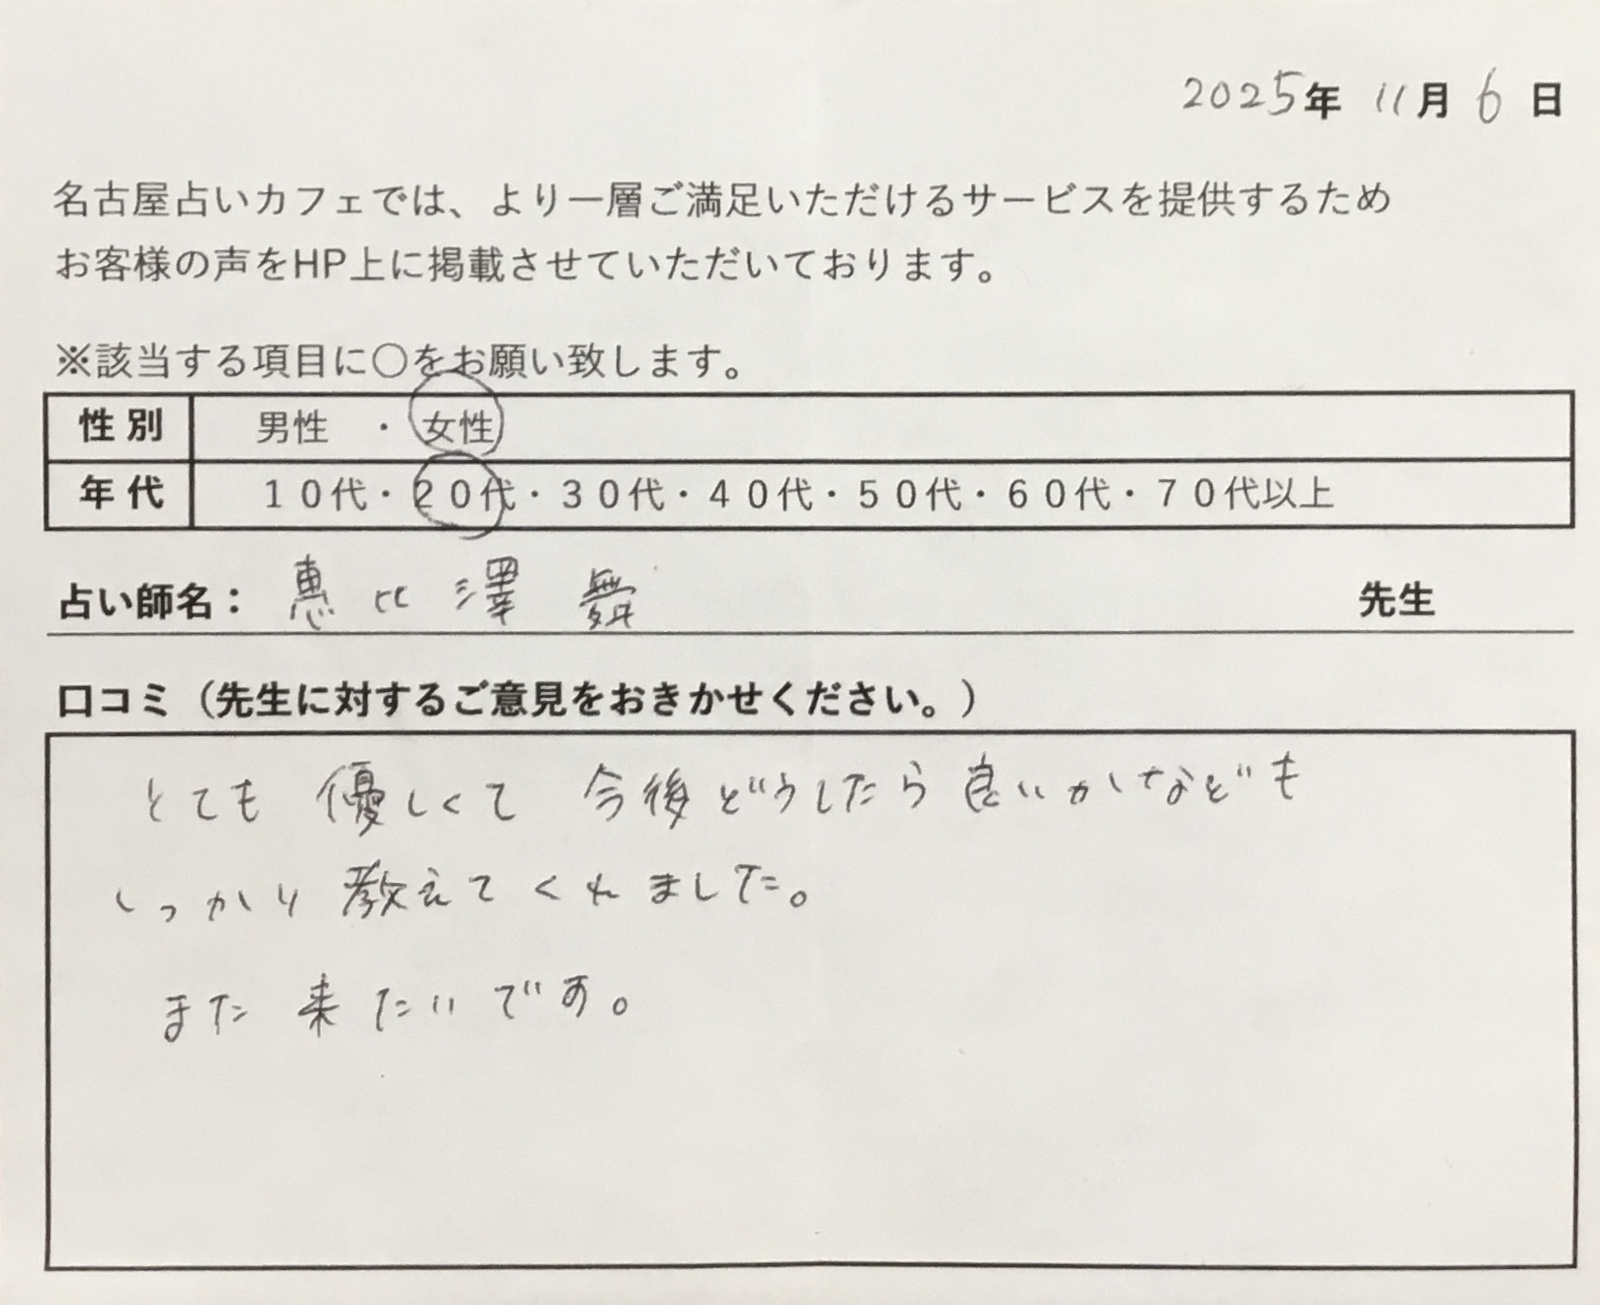 2025年 11月 6日
名古屋占いカフェでは、より一層ご満足いただけるサービスを提供するため
お客様の声をHP上に掲載させていただいております。
※該当する項目に〇をお願い致します。
性別 男性 ・ 女性
年代 10代・20代・30代・40代・50代・60代・70代以上
占い師名： 恵比澤 舞 先生
口コミ（先生に対するご意見をおきかせください。）
とても 優しくて 今後どうしたら良いかなども
しっかり教えてくれました。
また来たいです。